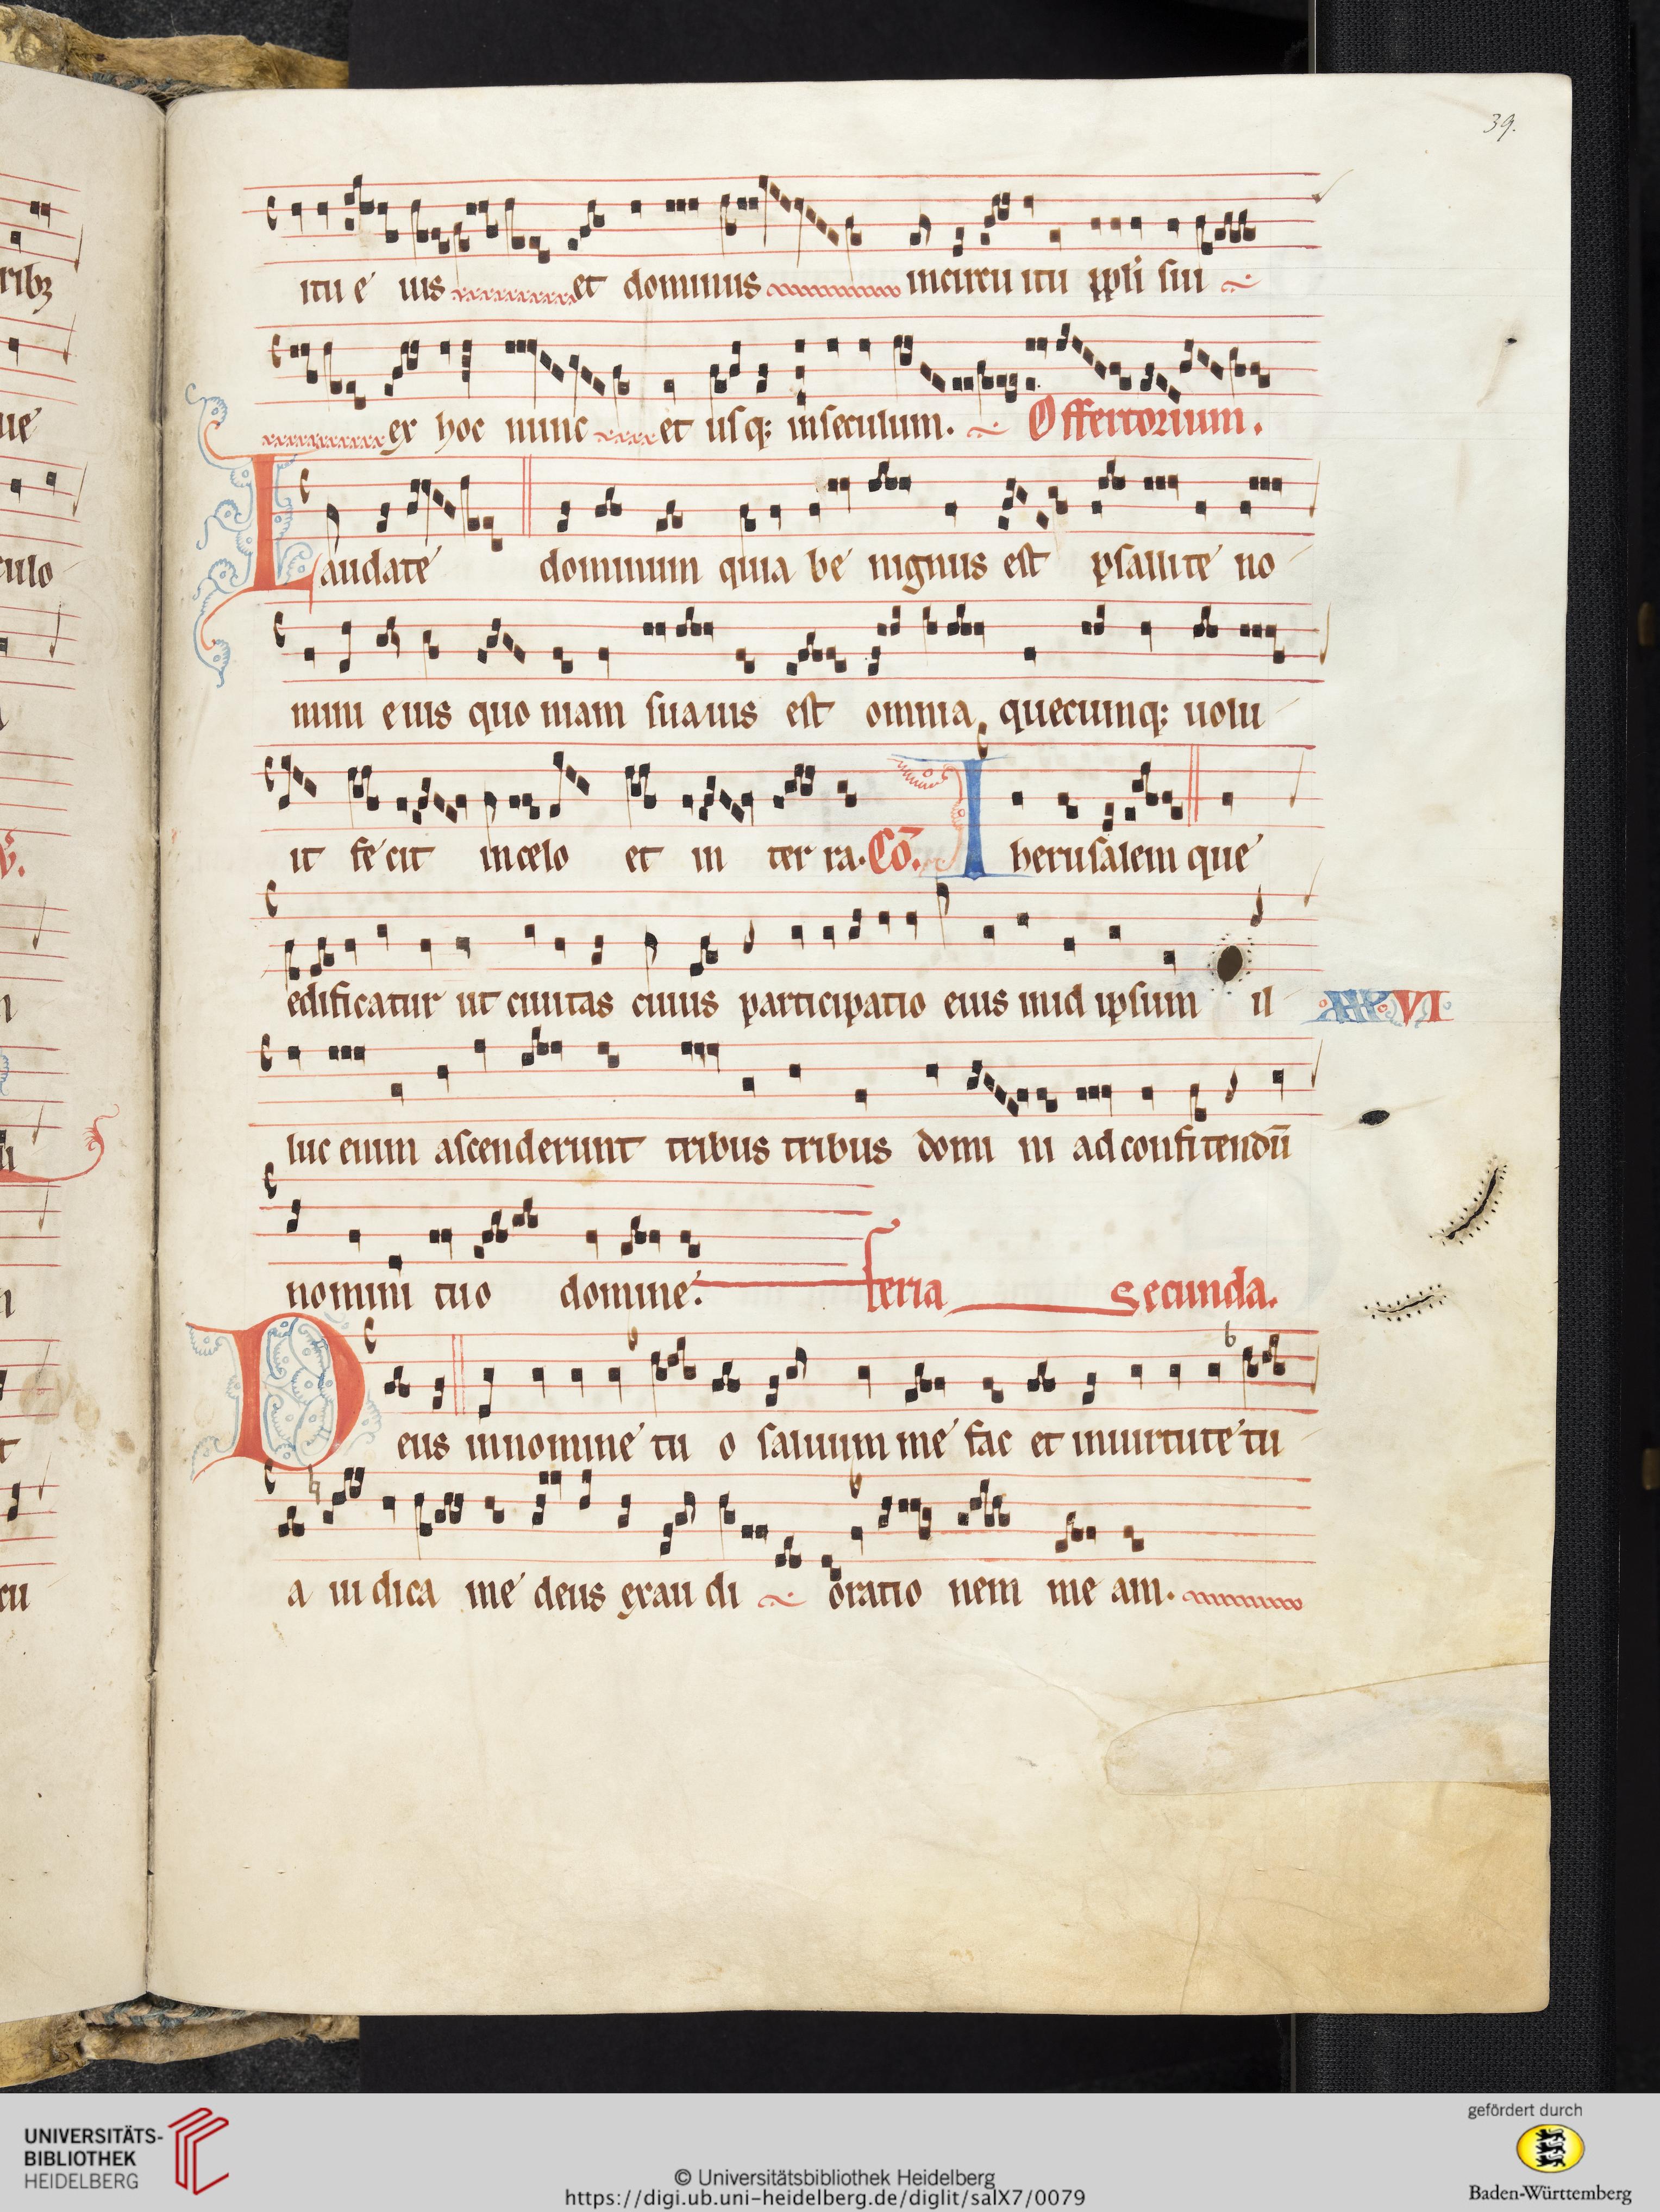 39.
itu e ius et dominus incircu itu ppli sui
ex hoc nunc et usq; inseculum. Offertorium.
Laudate dominum quia be nignus est psallite no
mini eius quo niam suauis est omnia quecumq; uolu
it fe cit incelo et in ter ra. Cō. Iherusalem que
edificatur ut ciuitas cuius participatio eius inid ipsum il
luc enim ascenderunt tribus tribus domi ni ad confitendū
nomini tuo domine. feria secunda.
Deus innomine tu o saluum me fac et inuirtute tu
a iu dica me deus exau di oratio nem me am.
ribꝫ
ue
culo
℣.
UNIVERSITÄTS-
BIBLIOTHEK
HEIDELBERG
© Universitätsbibliothek Heidelberg
https://digi.ub.uni-heidelberg.de/diglit/salX7/0079
gefördert durch
Baden-Württemberg